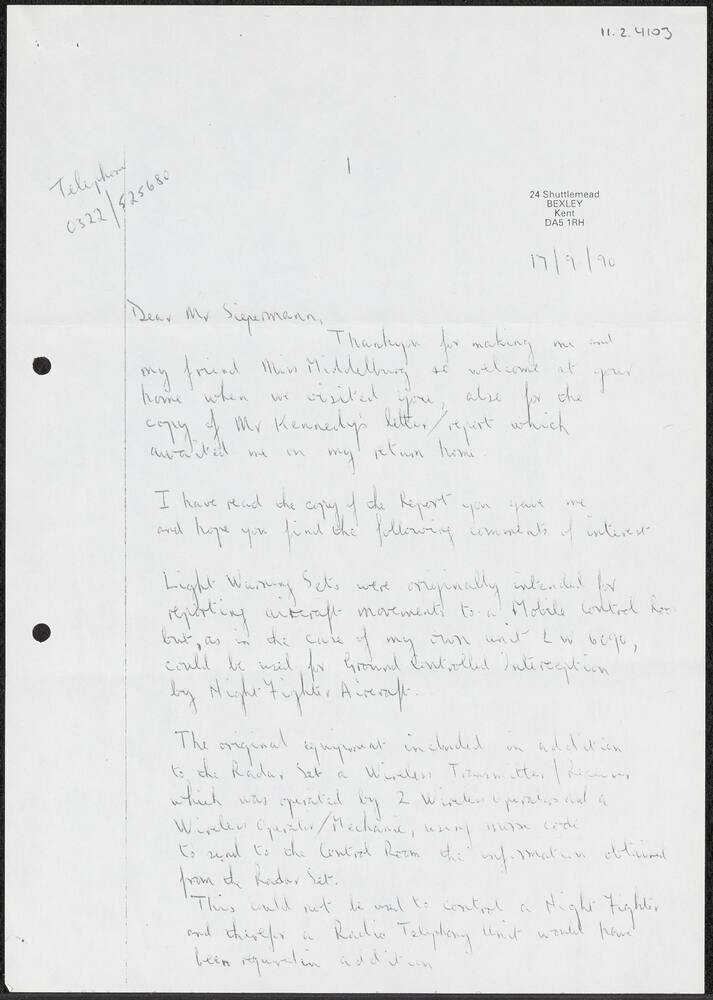 11.2.4103
1
Telephone
0322/525680
24 Shuttlemead
BEXLEY
Kent
DA5 1RH
17/9/90
Dear Mr Siepermann,
Thankyou for making me and
my friend Miss Middelburg so welcome at your
home when we visited you, also for the
copy of Mr Kennedy's letter/report which
awaited me on my return home.
I have read the copy of the Report you gave me
and hope you find the following comments of interest
Light Warning Sets were originally intended for
reporting aircraft movements to a Mobile Control
but, as in the case of my own unit LW 6090,
could be used for Ground Controlled Interception
by Night Fighter Aircraft.
The original equipment included in addition
to the Radar Set a Wireless Transmitter/Receiver
which was operated by 2 Wireless operators and a
Wireless Operator/Mechanic, using morse code
to send to the Control Room the information obtained
from the Radar Set.
This could not be used to control a Night Fighter
and therefor a Radio Telephony Unit would have
been required in addition